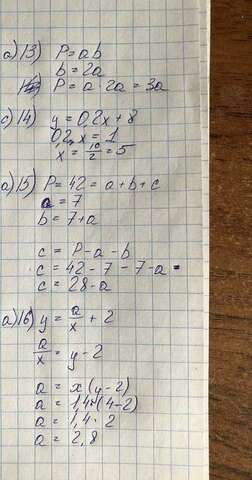 a) 13) P = ab
b = 2a
P = a · 2a = 3a
c) 14) y = 0,2x + 8
0,2x = 1
x = 10/2 = 5
a) 15) P = 42 = a + b + c
a = 7
b = 7 + a
c = P - a - b
c = 42 - 7 - 7 - a
c = 28 - a
a) 16) y = a/x + 2
a/x = y - 2
a = x(y - 2)
a = 1,4(4 - 2)
a = 1,4 · 2
a = 2,8